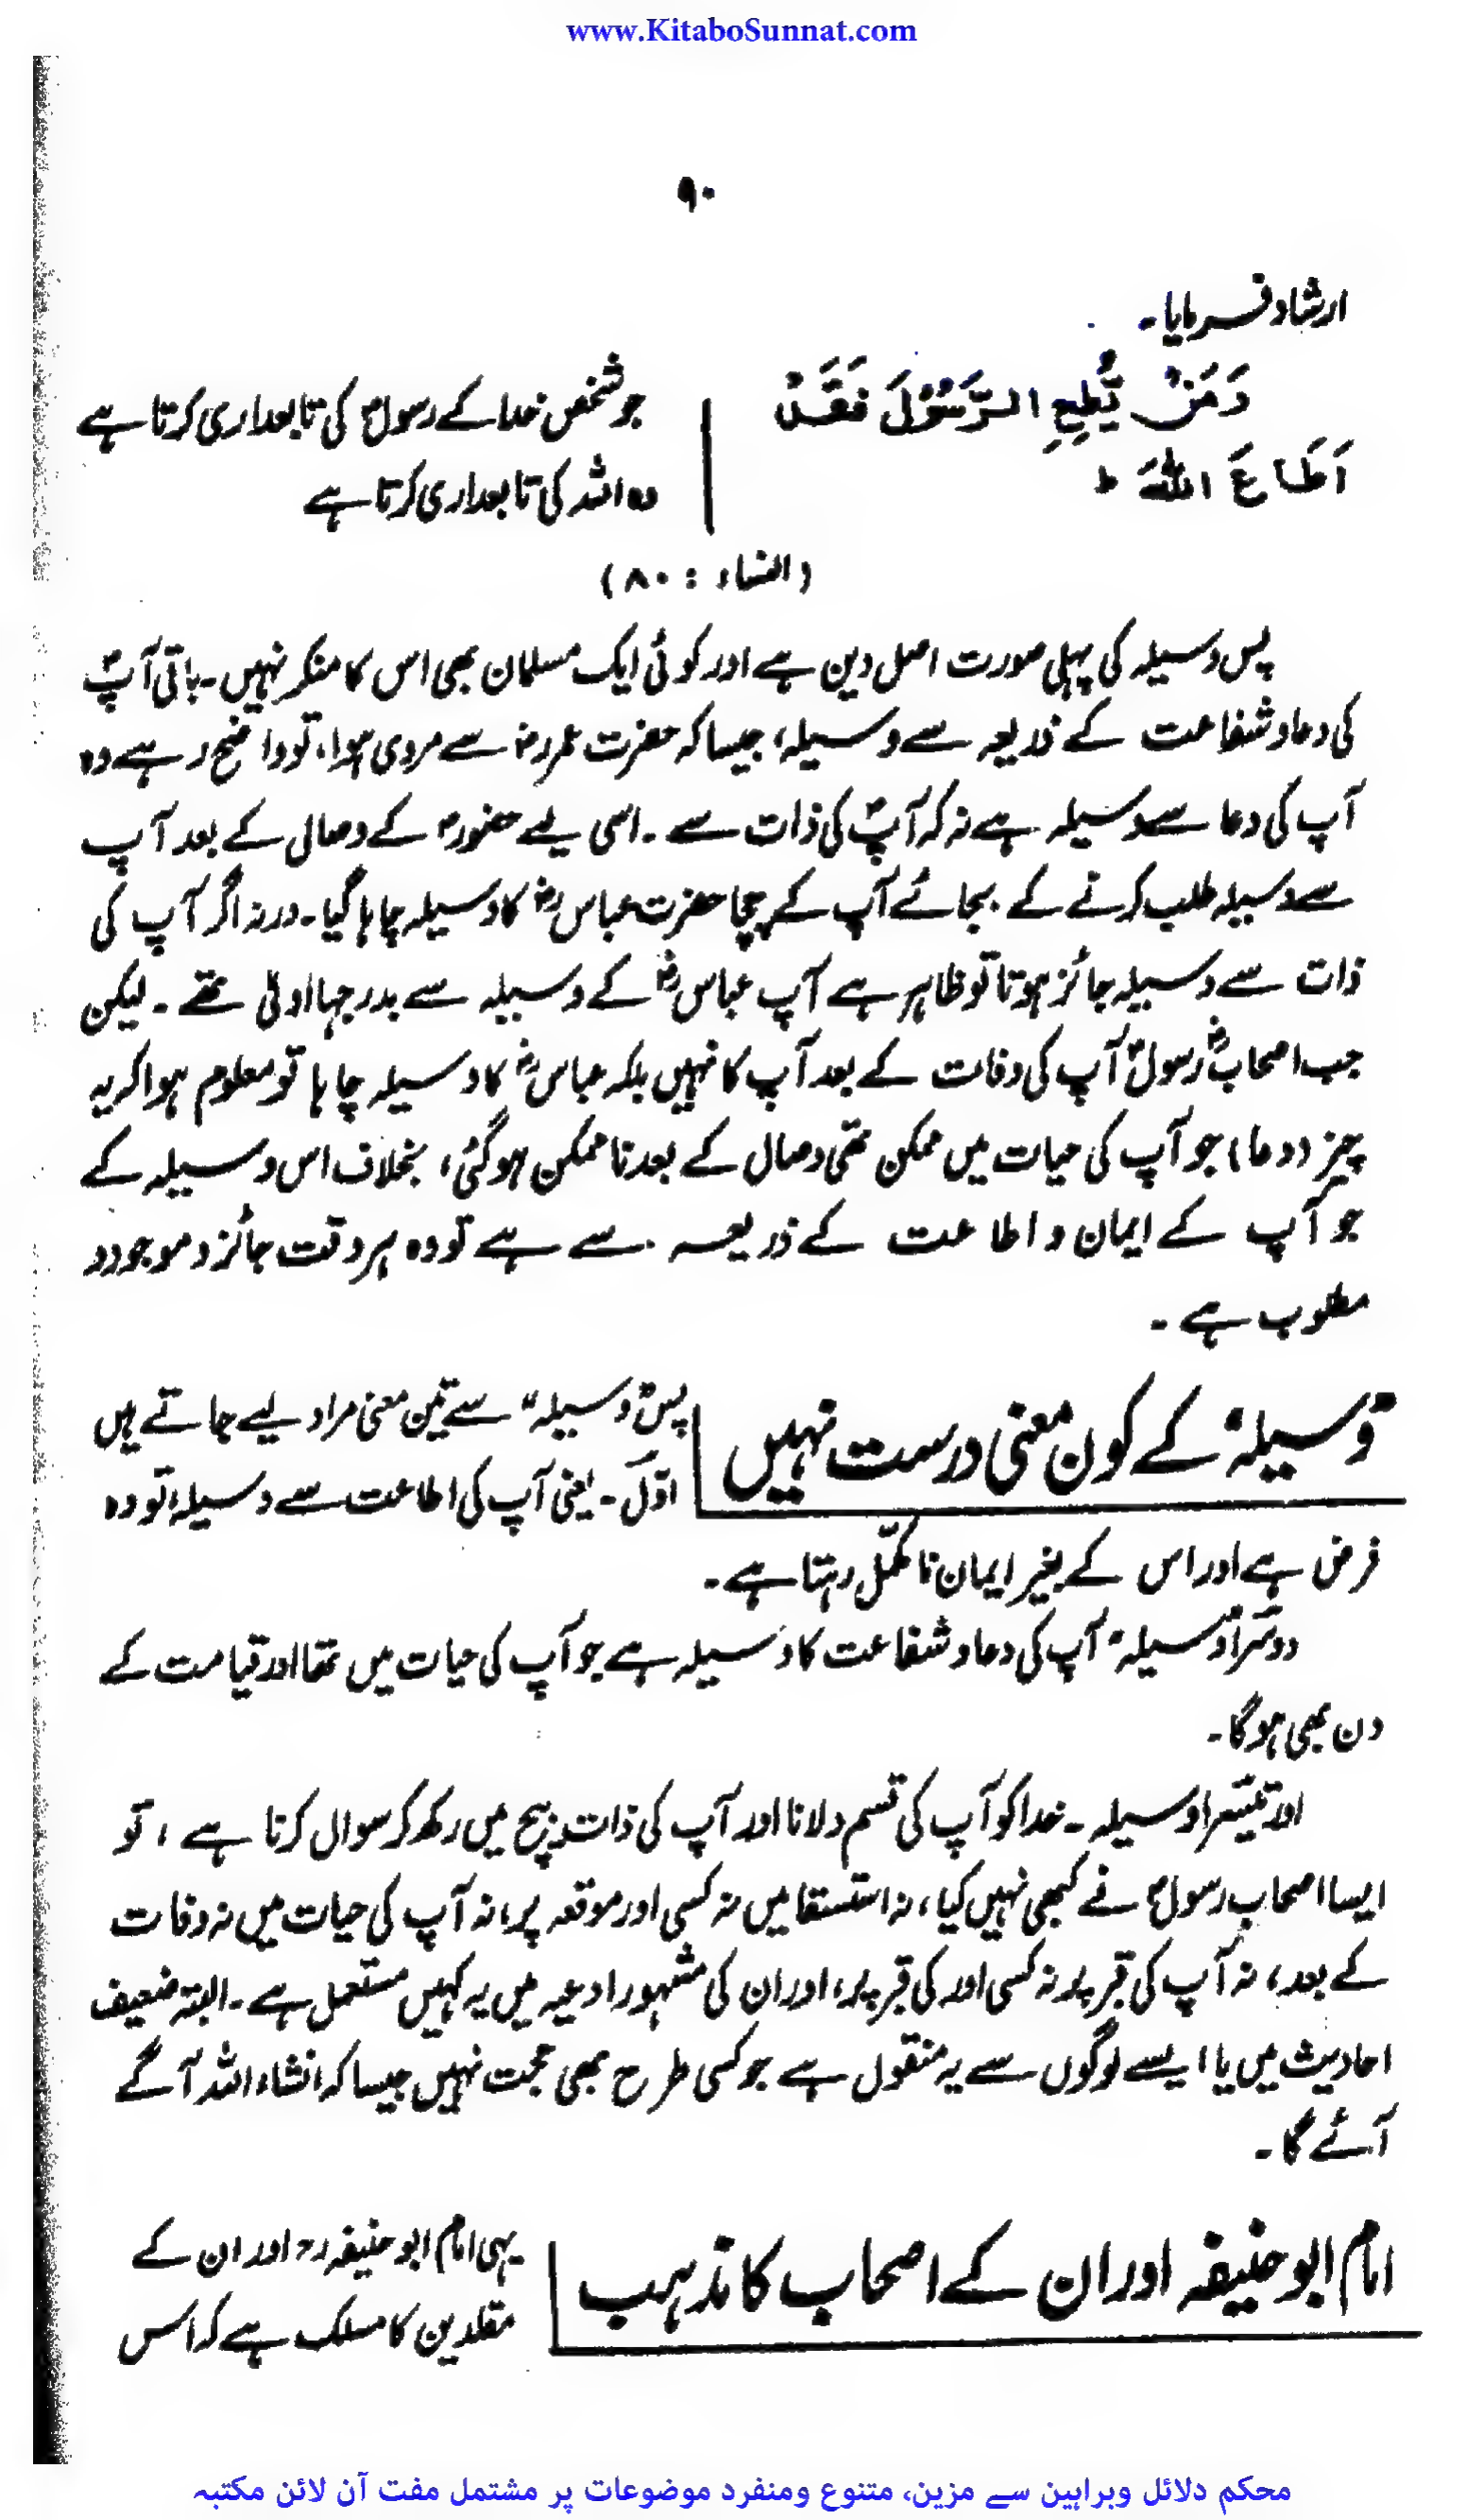 www.KitaboSunnat.com
۹۰
ارشاد فرمایا۔
وَمَنْ يُّطِعِ الرَّسُوْلَ فَقَدْ
اَطَاعَ اللّٰهَ ط
جو شخص خدا کے رسولؐ کی تابعداری کرتا ہے
وہ اللہ کی تابعداری کرتا ہے
(النساء : ۸۰)
پس وسیلہ کی پہلی صورت اصل دین ہے اور کوئی ایک مسلمان بھی اس کا منکر نہیں۔ باقی آپؐ
کی دعا و شفاعت کے ذریعہ سے وسیلہ، جیسا کہ حضرت عمرؓ سے مروی ہوا، تو واضح رہے وہ
آپ کی دعا سے وسیلہ ہے نہ کہ آپؐ کی ذات سے۔ اسی لیے حضورؐ کے وصال کے بعد آپ
سے وسیلہ طلب کرنے کے بجائے آپ کے چچا حضرت عباسؓ کا وسیلہ چاہا گیا۔ ورنہ اگر آپ کی
ذات سے وسیلہ جائز ہوتا تو ظاہر ہے آپ عباسؓ کے وسیلہ سے بدرجہا اولیٰ تھے۔ لیکن
جب اصحابؓ رسولؐ آپ کی وفات کے بعد آپ کا نہیں بلکہ عباسؓ کا وسیلہ چاہا تو معلوم ہوا کہ یہ
چیز (دعا) جو آپ کی حیات میں ممکن تھی وصال کے بعد ناممکن ہو گئی، بخلاف اس وسیلہ کے
جو آپ کے ایمان و اطاعت کے ذریعہ سے ہے تو وہ ہر وقت جائز و موجود و
مطلوب ہے۔
"وسیلہ" کے کون معنی درست نہیں
پس "وسیلہ" سے تین معنی مراد لیے جاتے ہیں
اوّل۔ یعنی آپ کی اطاعت سے وسیلہ، تو وہ
فرض ہے اور اس کے بغیر ایمان نامکمّل رہتا ہے۔
دوسرا "وسیلہ" آپ کی دعا و شفاعت کا وسیلہ ہے جو آپ کی حیات میں تھا اور قیامت کے
دن بھی ہوگا۔
اور تیسرا وسیلہ۔ خدا کو آپ کی قسم دلانا اور آپ کی ذات بیچ میں رکھ کر سوال کرنا ہے، تو
ایسا اصحاب رسولؐ نے کبھی نہیں کیا، نہ استسقا میں نہ کسی اور موقعہ پر، نہ آپ کی حیات میں نہ وفات
کے بعد، نہ آپ کی قبر پر نہ کسی اور کی قبر پر، اور ان کی مشہور ادعیہ میں یہ کہیں مستعمل ہے۔ البتہ ضعیف
احادیث میں یا ایسے لوگوں سے یہ منقول ہے جو کسی طرح بھی حجت نہیں جیسا کہ انشاء اللہ آگے
آئے گا۔
امام ابو حنیفہ اور ان کے اصحاب کا مذہب
یہی امام ابو حنیفہؒ اور ان کے
مقلدین کا مسلک ہے کہ اس
محکم دلائل وبراہین سے مزین، متنوع ومنفرد موضوعات پر مشتمل مفت آن لائن مکتبہ